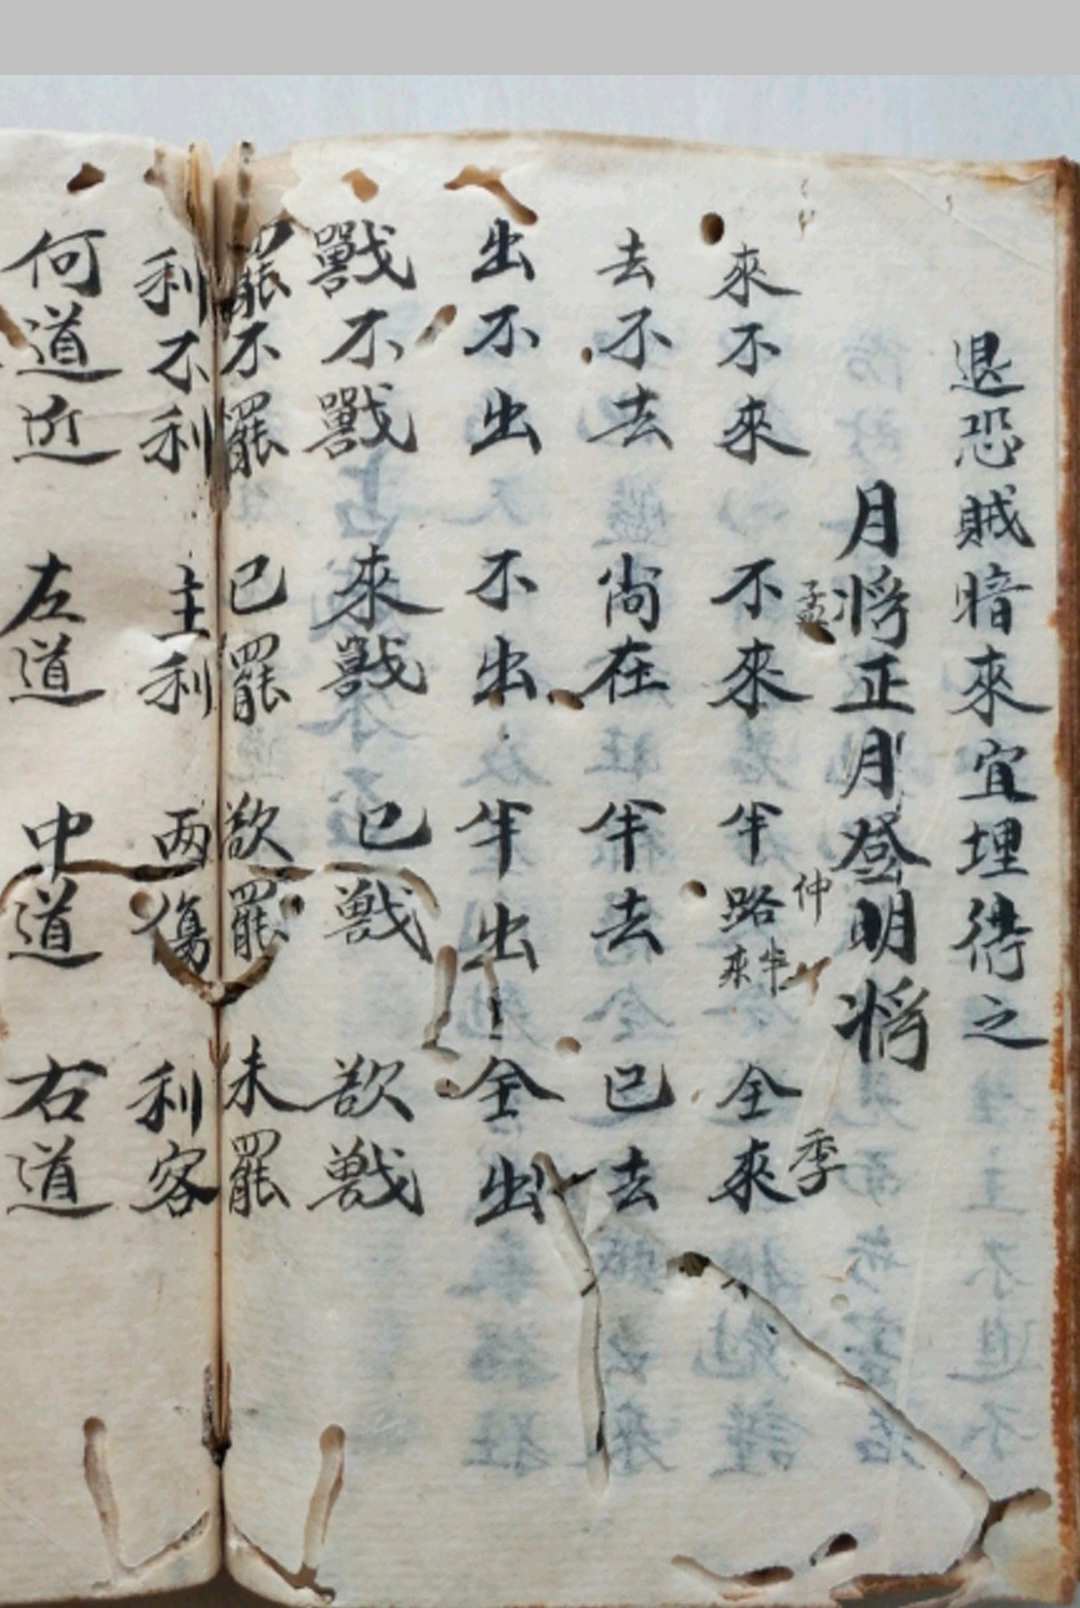 退恐賊暗來宜埋待之
月將正月登明將
孟 仲 季
來不來 不來 半路來半 全來
去不去 尚在 半去 已去
出不出 不出 半出 全出
戰不戰 來戰 已戰 欲戰
罷不罷 已罷 欲罷 未罷
利不利 主利 兩傷 利客
何道近 左道 中道 右道